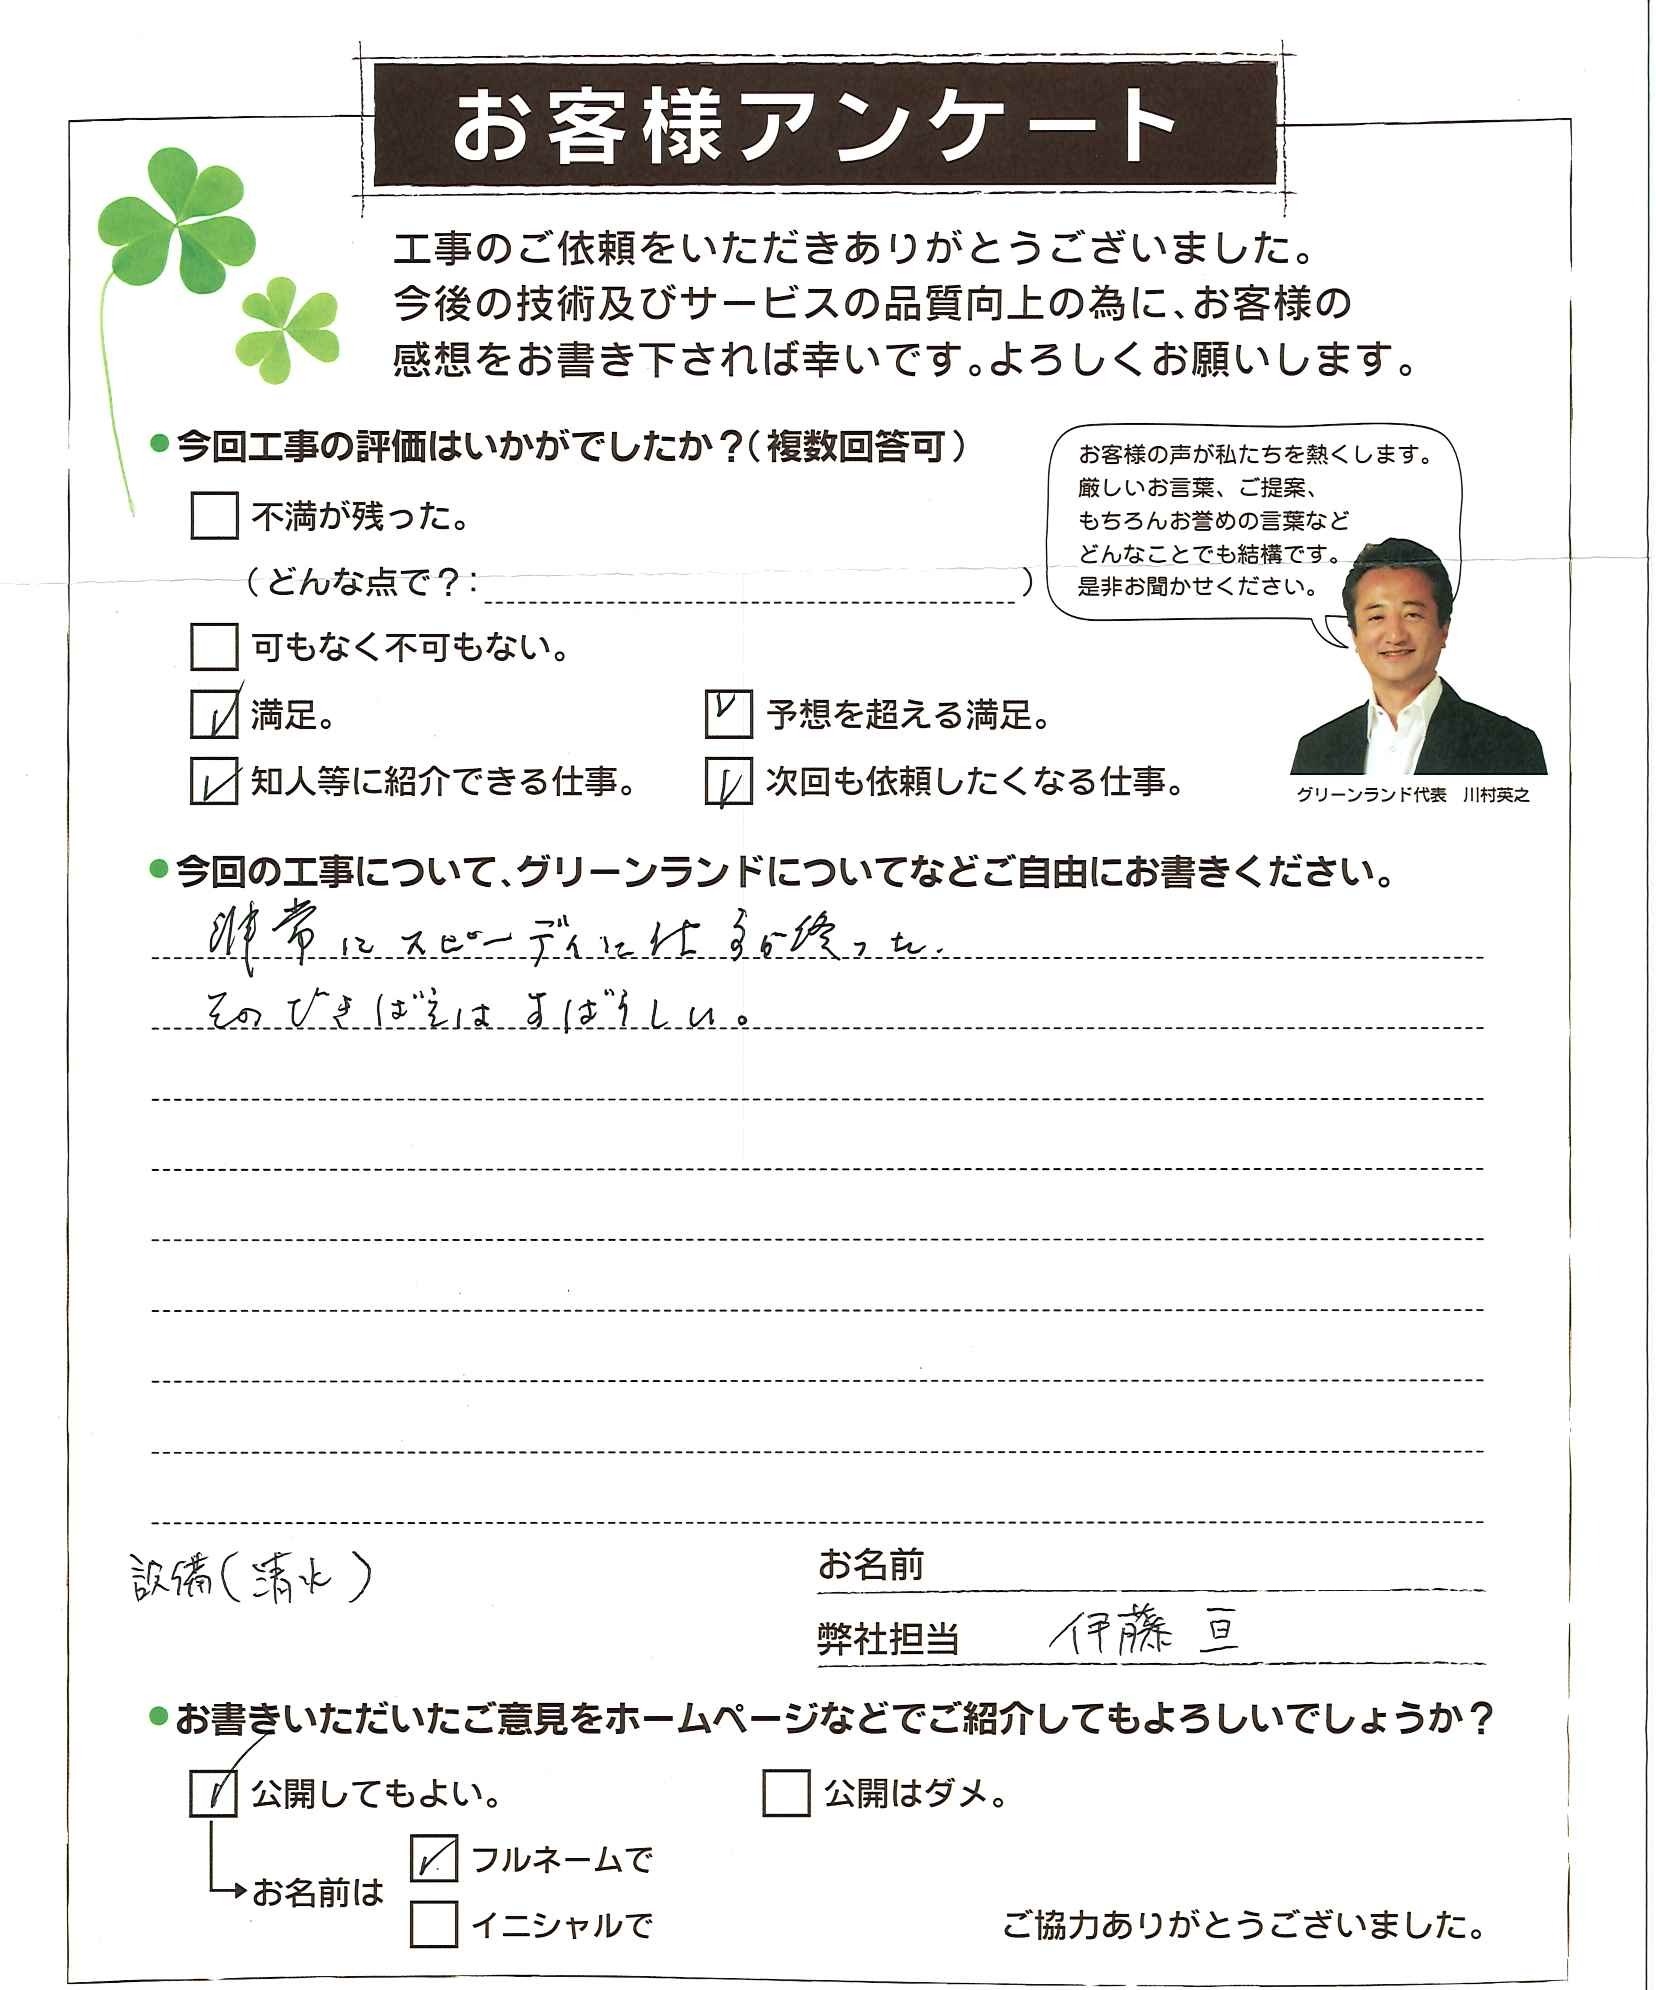 お客様アンケート
工事のご依頼をいただきありがとうございました。
今後の技術及びサービスの品質向上の為に、お客様の
感想をお書き下されば幸いです。よろしくお願いします。
●今回工事の評価はいかがでしたか？（複数回答可）
不満が残った。
（どんな点で？： ）
可もなく不可もない。
満足。
予想を超える満足。
知人等に紹介できる仕事。
次回も依頼したくなる仕事。
お客様の声が私たちを熱くします。
厳しいお言葉、ご提案、
もちろんお誉めの言葉など
どんなことでも結構です。
是非お聞かせください。
グリーンランド代表　川村英之
●今回の工事について、グリーンランドについてなどご自由にお書きください。
非常にスピーディに仕事が終った。
そのできばえはすばらしい。
設備(清水)
お名前
弊社担当 伊藤 亘
●お書きいただいたご意見をホームページなどでご紹介してもよろしいでしょうか？
公開してもよい。
公開はダメ。
お名前は
フルネームで
イニシャルで
ご協力ありがとうございました。